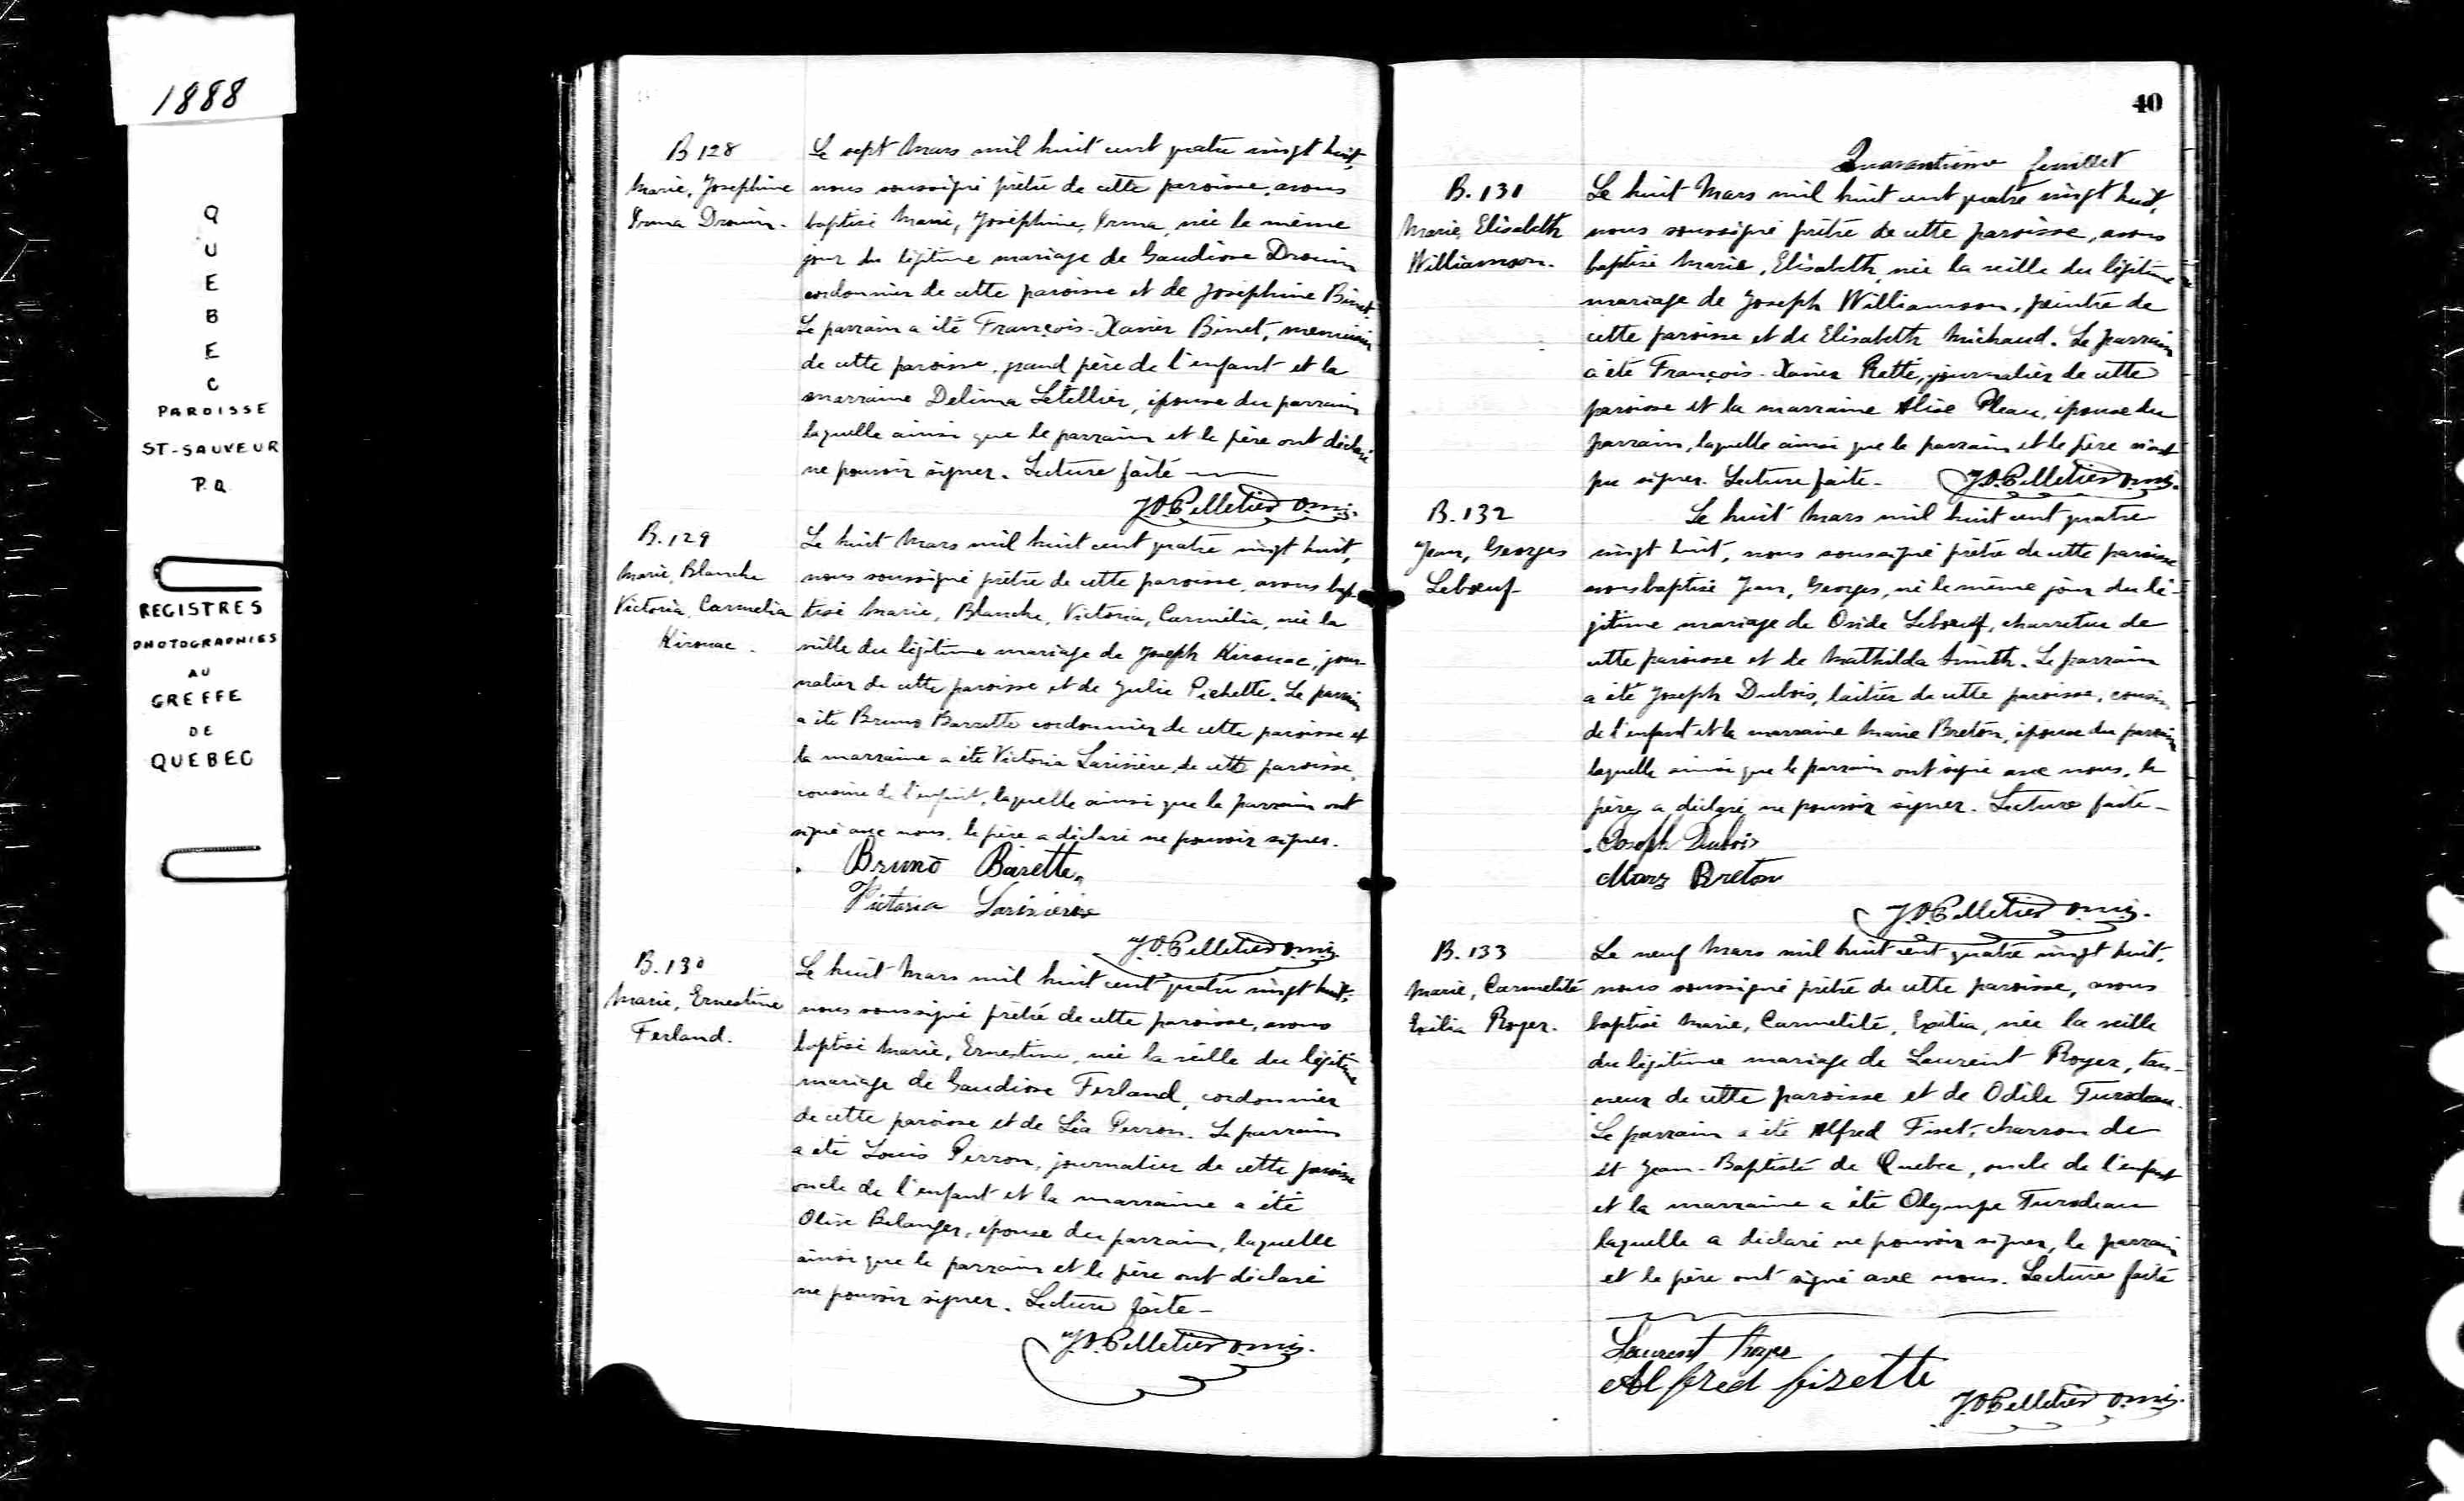 1888
QUEBEC
PAROISSE
ST-SAUVEUR
P.Q.
REGISTRES
PHOTOGRAPHIES
AU
GREFFE
DE
QUEBEC
B 128
Marie, Josephine
Irma Drouin.
Le sept Mars mil huit cent quatre vingt huit,
nous soussigné prêtre de cette paroisse, avons
baptisé Marie, Joséphine, Irma, née le même
jour du légitime mariage de Gaudiose Drouin
cordonnier de cette paroisse et de Joséphine Binet.
Le parrain a été François-Xavier Binet, menuisier
de cette paroisse, grand père de l'enfant et la
marraine Delima Letellier, épouse du parrain
laquelle ainsi que le parrain et le père ont déclaré
ne pouvoir signer. Lecture faite
J.O. Pelletier o.m.i.
B. 129
Marie, Blanche
Victoria, Carmelia
Kirouac.
Le huit Mars mil huit cent quatre vingt huit,
nous soussigné prêtre de cette paroisse, avons bap-
tisé Marie, Blanche, Victoria, Carmélia, née la
veille du légitime mariage de Joseph Kirouac, jour-
nalier de cette paroisse et de Julie Pichette. Le parrain
a été Bruno Barrette cordonnier de cette paroisse et
la marraine a été Victoria Larivière, de cette paroisse,
cousine de l'enfant, laquelle ainsi que le parrain ont
signé avec nous, le père a déclaré ne pouvoir signer.
Bruno Barette
Victoria Larivière
J.O. Pelletier o.m.i.
B. 130
Marie, Ernestine
Ferland.
Le huit Mars mil huit cent quatre vingt huit,
nous soussigné prêtre de cette paroisse, avons
baptisé Marie, Ernestine, née la veille du légitime
mariage de Gaudiose Ferland, cordonnier
de cette paroisse et de Léa Perron. Le parrain
a été Louis Perron, journalier de cette paroisse
oncle de l'enfant et la marraine a été
Olive Belanger, épouse du parrain, laquelle
ainsi que le parrain et le père ont déclaré
ne pouvoir signer. Lecture faite-
J.O. Pelletier o.m.i.
40
Quarantième feuillet
B. 131
Marie, Elisabeth
Williamson.
Le huit Mars mil huit cent quatre vingt huit,
nous soussigné prêtre de cette paroisse, avons
baptisé Marie, Elisabeth, née la veille du légitime
mariage de Joseph Williamson, peintre de
cette paroisse et de Elisabeth Michaud. Le parrain
a été François-Xavier Retté, journalier de cette
paroisse et la marraine Alise Pleau, épouse du
parrain, laquelle ainsi que le parrain et le père n'ont
pu signer. Lecture faite-
J.O. Pelletier o.m.i.
B. 132
Jean, Georges
Leboeuf
Le huit Mars mil huit cent quatre
vingt huit, nous soussigné prêtre de cette paroisse
avons baptisé Jean, Georges, né le même jour du lé-
gitime mariage de Ovide Leboeuf, charretier de
cette paroisse et de Mathilda Smith. Le parrain
a été Joseph Dubois, laitier de cette paroisse, cousin
de l'enfant et la marraine Marie Breton, épouse du parrain
laquelle ainsi que le parrain ont signé avec nous, le
père a déclaré ne pouvoir signer. Lecture faite-
Joseph Dubois
Mary Breton
J.O. Pelletier o.m.i.
B. 133
Marie, Carmelité
Exilia Royer.
Le neuf Mars mil huit cent quatre vingt huit,
nous soussigné prêtre de cette paroisse, avons
baptisé Marie, Carmelité, Exilia, née la veille
du légitime mariage de Laurent Royer, tan-
neur de cette paroisse et de Odile Turodeau.
Le parrain a été Alfred Fiset, charron de
St Jean-Baptiste de Quebec, oncle de l'enfant
et la marraine a été Olympe Turodeau
laquelle a déclaré ne pouvoir signer, le parrain
et le père ont signé avec nous. Lecture faite
Laurent Royer
Alfred fisette
J.O. Pelletier o.m.i.